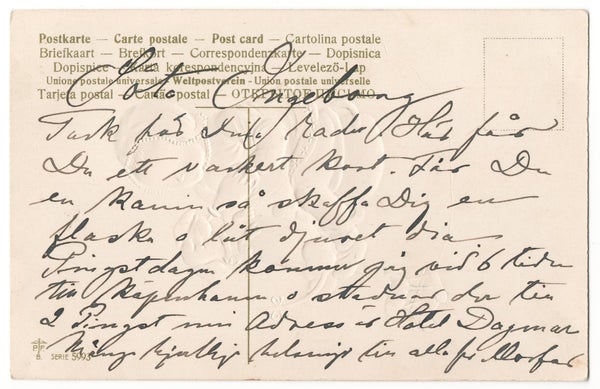 Postkarte — Carte postale — Post card — Cartolina postale
Briefkaart — Brefkort — Correspondenzkarte — Dopisnica
Dopisnice — Karta korespondencyjna — Levelező-Lap
Unione postale universale Weltpostverein - Union postale universelle
Tarjeta postal — Cartão postal — ОТКРЫТОЕ ПИСЬМО
Söta Ingeborg
Tack för Dina rader. Här får
Du ett vackert kort. Får Du
en kanin så skaffa Dig en
flaska o låt djuret dia
Pingstdagen kommer jag vid 6 tiden
till Köpenhamn o stadnar der till
2 Pingst min Adress är Hotel Dagmar
Många hjertliga helsningar till alla fr Morfar
P F B. SERIE 5993